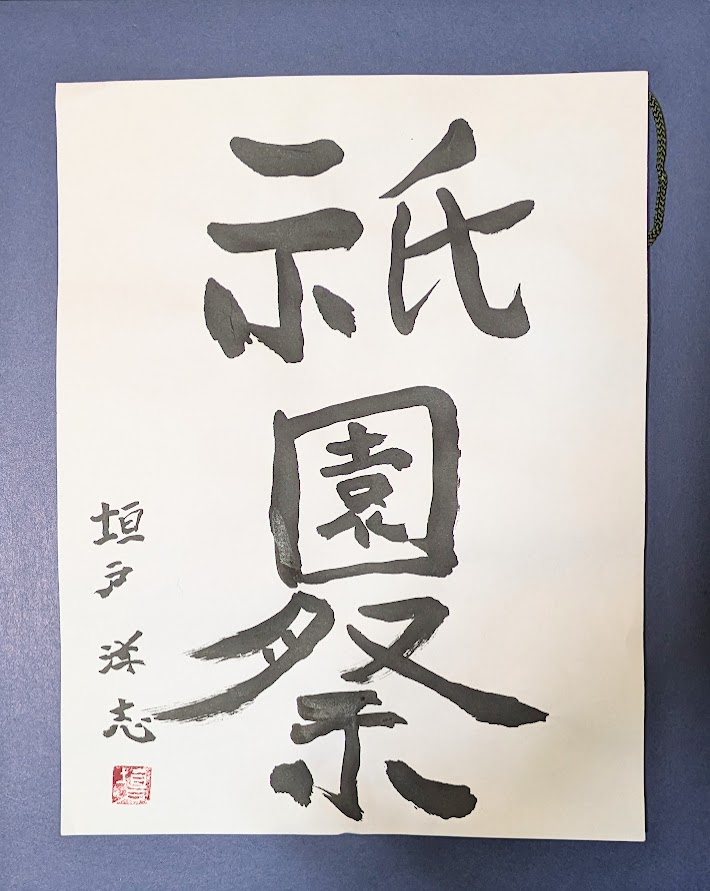 祇園祭
垣戸 洋志
垣